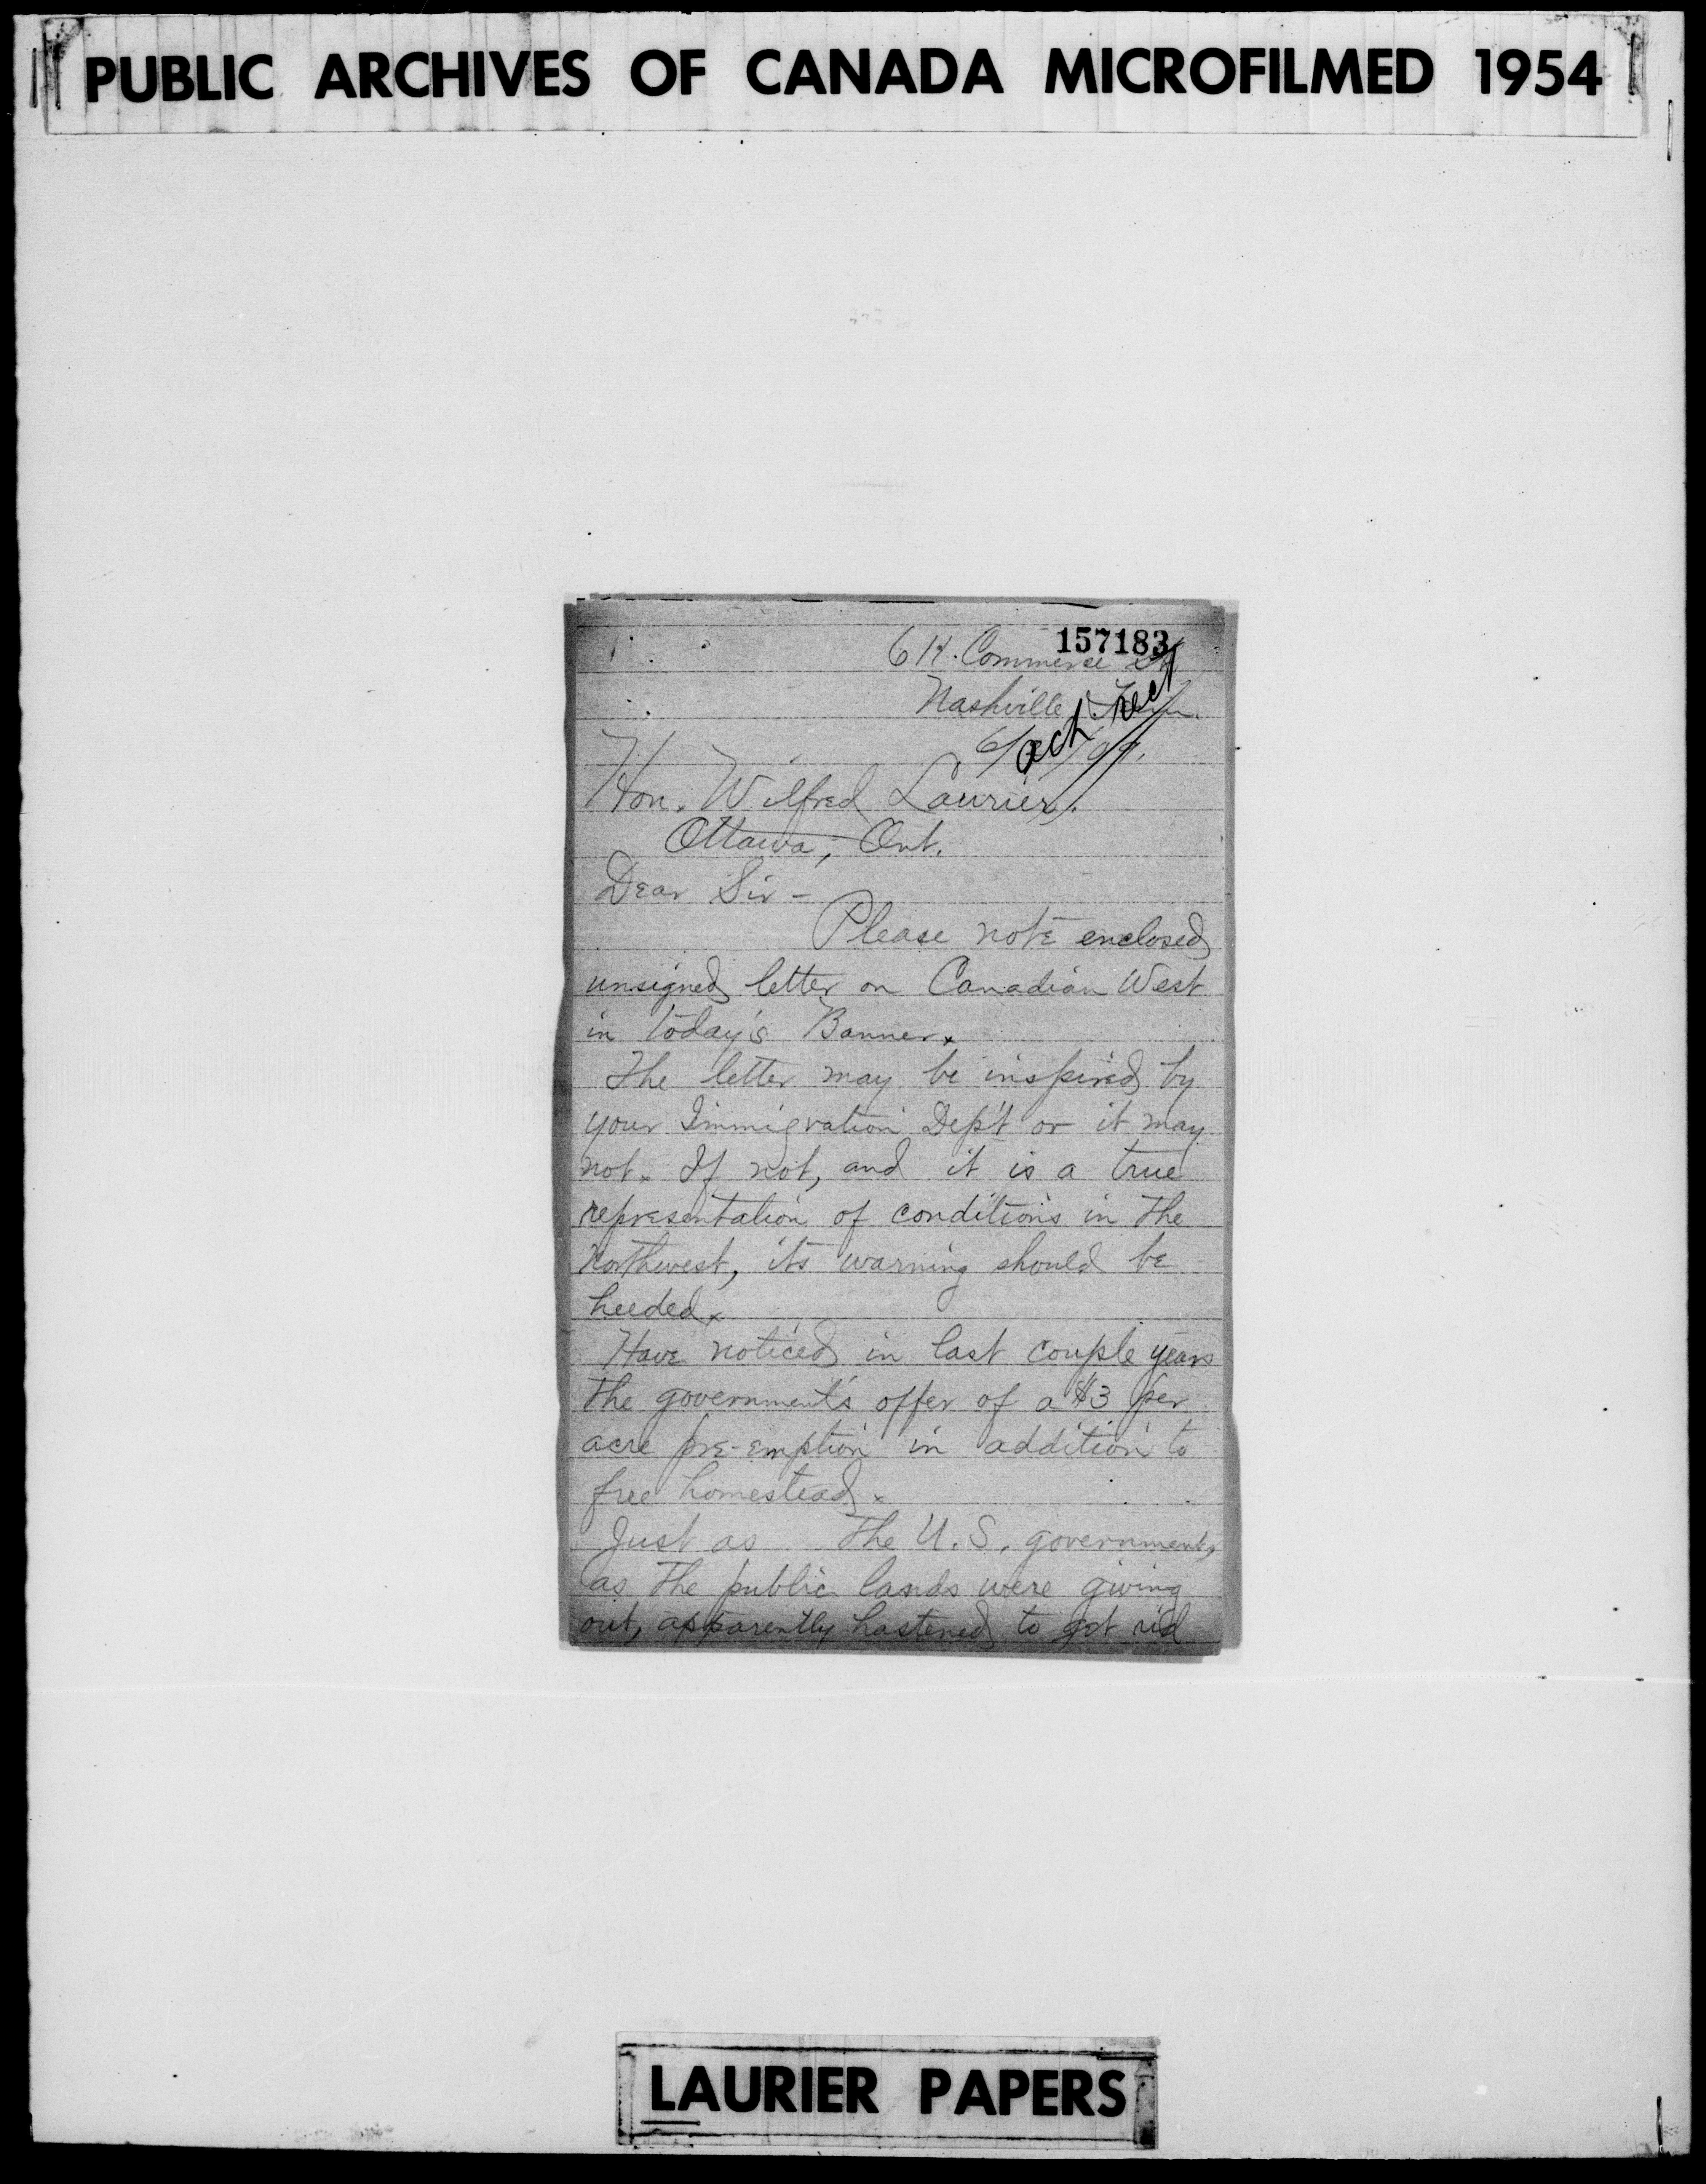 PUBLIC ARCHIVES OF CANADA MICROFILMED 1954
157183
Commerce St
Nashville, Tenn.
ack
Hon. Wilfred Laurier,
Ottawa, Ont.
Dear Sir -
Please note enclosed
unsigned letter on Canadian West
in today's Banner.
The letter may be inspired by
your Immigration Dep't or it may
not. If not, and it is a true
representation of conditions in the
Northwest, its warning should be
heeded.
Have noticed in last couple years
the government's offer of a $3 per
acre pre-emption in addition to
free homestead.
Just as the U.S. government,
as the public lands were giving
out, apparently hastened to got rid
LAURIER PAPERS